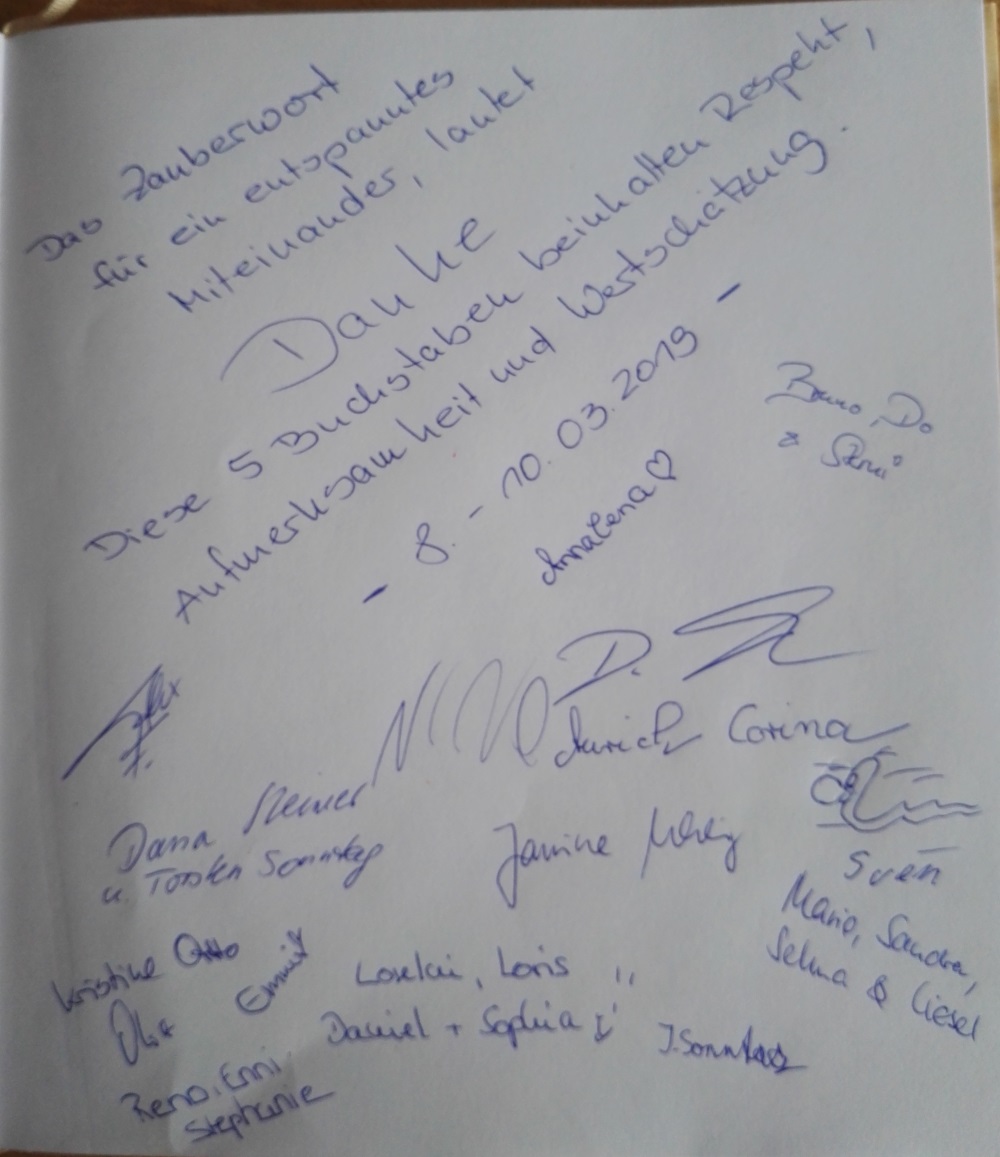 Das Zauberwort
für ein entspanntes
Miteinander, lautet
Danke
Diese 5 Buchstaben beinhalten Respekt,
Aufmerksamkeit und Wertschätzung.
- 8. - 10.03.2019 -
Bruno, Do
&
Annalena ♡
D.
Corina
Dana
u. Torsten Sonntag
Janine
Sven
Mario, Sandra,
Selma & Liesel
Kristine Otto
Emmi
Loris
Daniel + Sophia
J. Sonntag
Reno, Enni
Stephanie